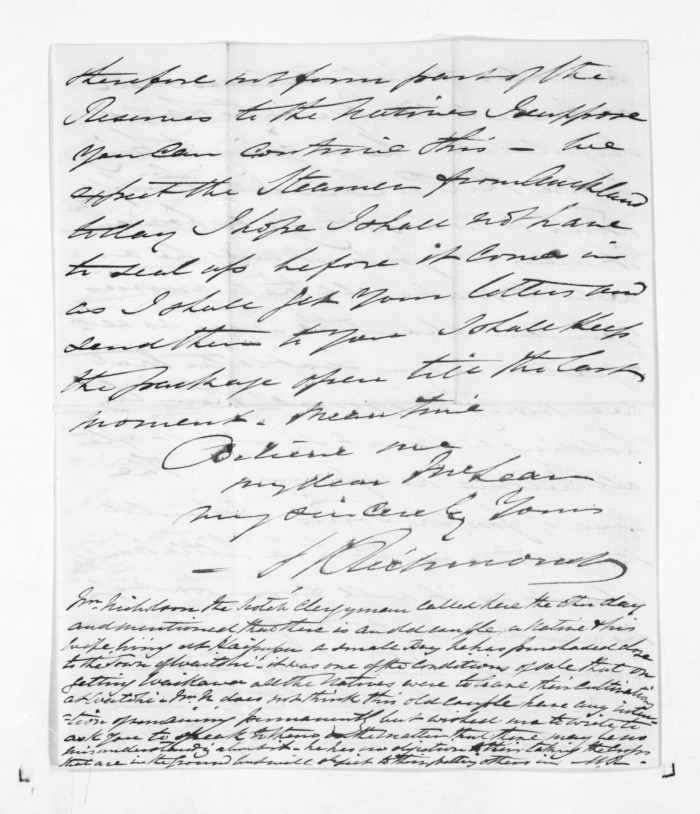 therefore not form part of the
Reserves to the Natives I suppose
you can contrive this — We
expect the Steamer from Auckland
today I hope I shall not have
to seal up before it comes in
as I shall get your letters and
send them to you I shall keep
the package open till the last
moment. Meantime
Believe me
my dear McLean
my sincerely Yours
M Richmond
Mr Nicholson the Scotch Clergyman called here the other day
and mentioned that there is an old couple, a Native & his
wife living at a small Bay he has purchased close
to the Town of Waitohi. it was one of the conditions of sale that on
getting Waikawa all the Natives were to leave their Cultivations
at Waitohi. Mr N. does not think this old couple have any inten
-tion of remaining permanently but wished me to write to
ask you to speak to them on the matter that there may be no
misunderstanding about it. he has no objection to their taking the crops
that are in the ground but will object to their putting others in M.R.